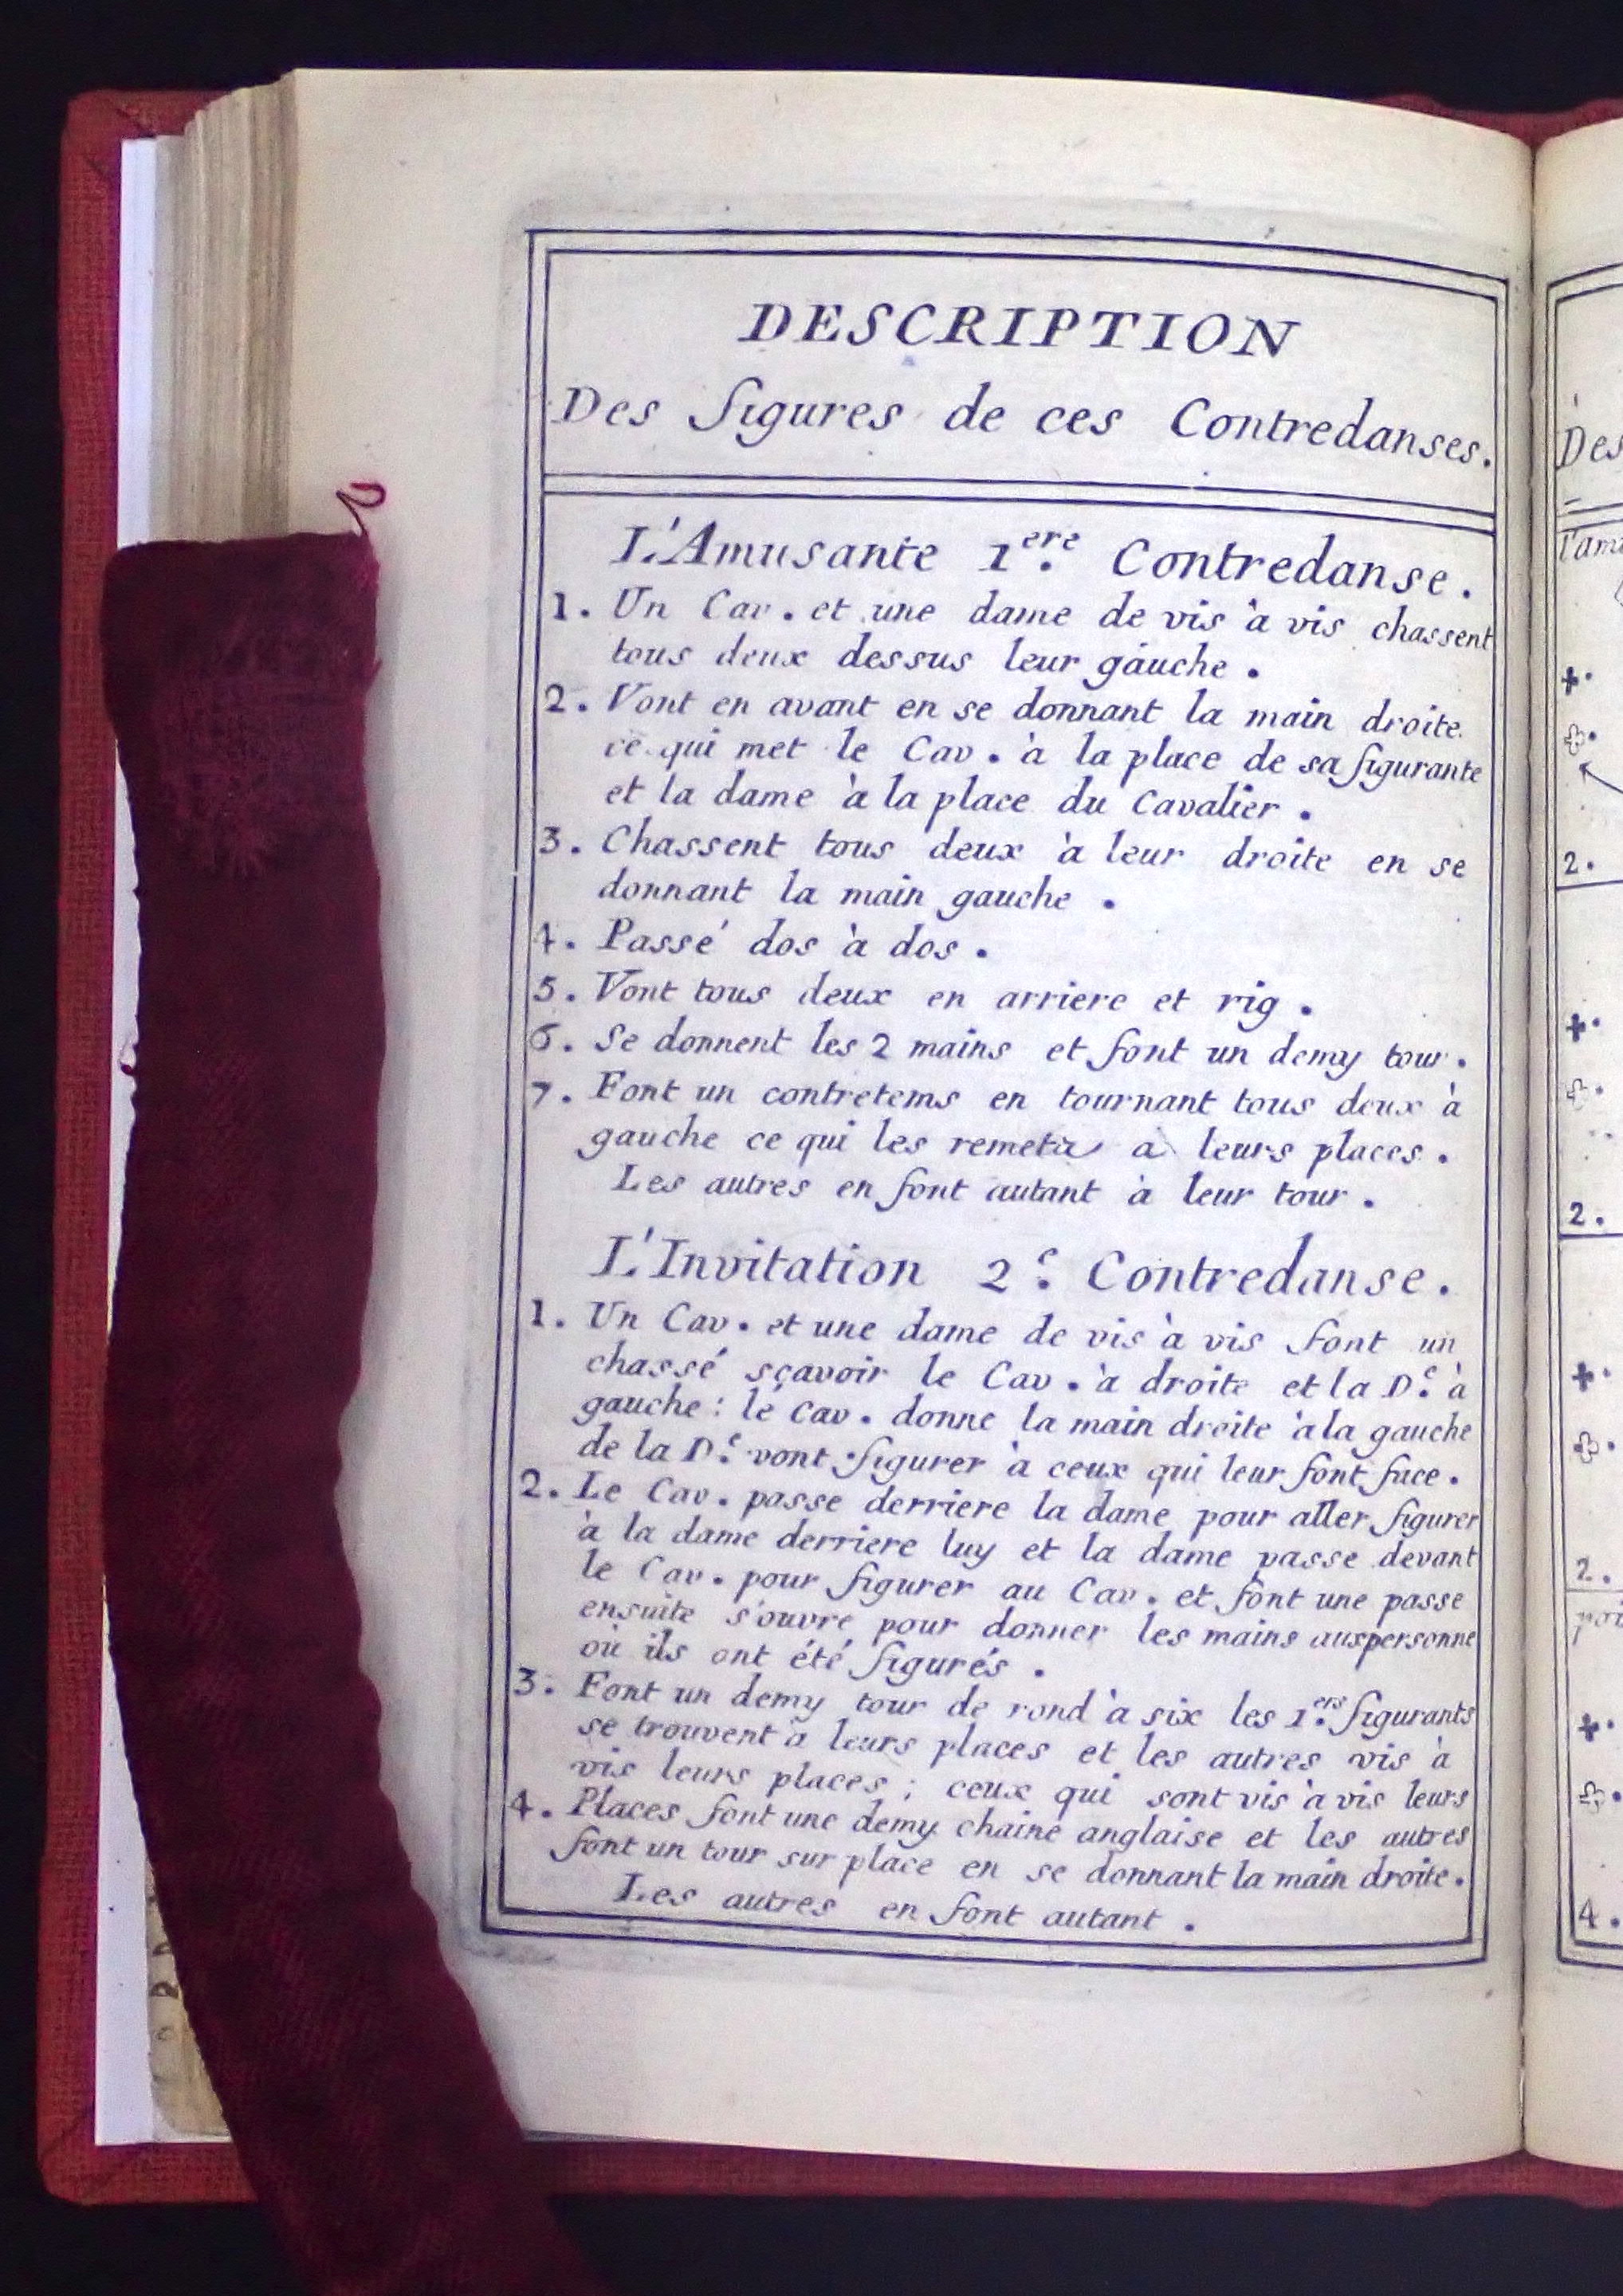 DESCRIPTION
Des figures de ces Contredanses.
L'Amusante 1.ere Contredanse.
1. Un Cav. et une dame de vis à vis chassent
tous deux dessus leur gauche.
2. Vont en avant en se donnant la main droite
ce qui met le Cav. à la place de sa figurante
et la dame à la place du Cavalier.
3. Chassent tous deux à leur droite en se
donnant la main gauche.
4. Passé dos à dos.
5. Vont tous deux en arriere et rig.
6. Se donnent les 2 mains et font un demy tour.
7. Font un contretems en tournant tous deux à
gauche ce qui les remet à leurs places.
Les autres en font autant à leur tour.
L'Invitation 2.e Contredanse.
1. Un Cav. et une dame de vis à vis font un
chassé sçavoir le Cav. à droite et la D.e à
gauche: le Cav. donne la main droite à la gauche
de la D.e vont figurer à ceux qui leur font face.
2. Le Cav. passe derriere la dame pour aller figurer
à la dame derriere luy et la dame passe devant
le Cav. pour figurer au Cav. et font une passe
ensuite s'ouvre pour donner les mains aux personne
où ils ont été figurés.
3. Font un demy tour de rond à six les 1.ers figurants
se trouvent à leurs places et les autres vis à
vis leurs places; ceux qui sont vis à vis leurs
4. Places font une demy chaine anglaise et les autres
font un tour sur place en se donnant la main droite.
Les autres en font autant.
Des
2.
2.
2.
4.